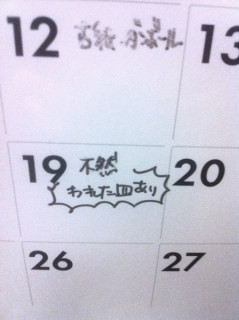 12 古紙・ダンボール 13
19 不燃 20
われた皿あり
26 27